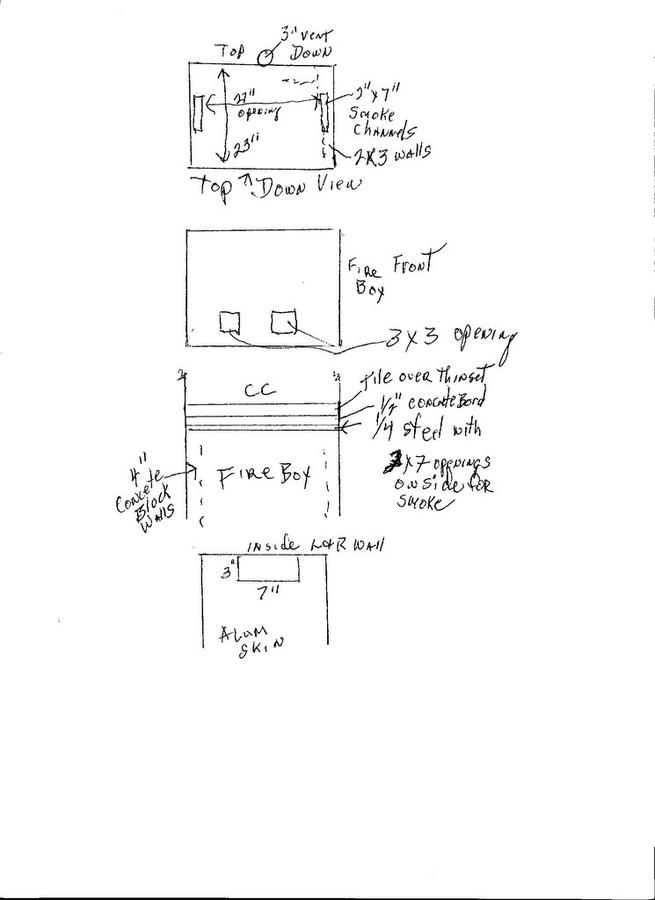 3" vent
Top Down
27"
opening
23"
2"x7"
Smoke
Channels
2x3 walls
Top Down View
Fire Front
Box
3x3 opening
CC
Tile over thinset
1/2" concrete Bord
1/4 steel with
x7 openings
on side for
smoke
4"
Concete
Block
Walls
Fire Box
inside L&R wall
3"
7"
Alum
Skin